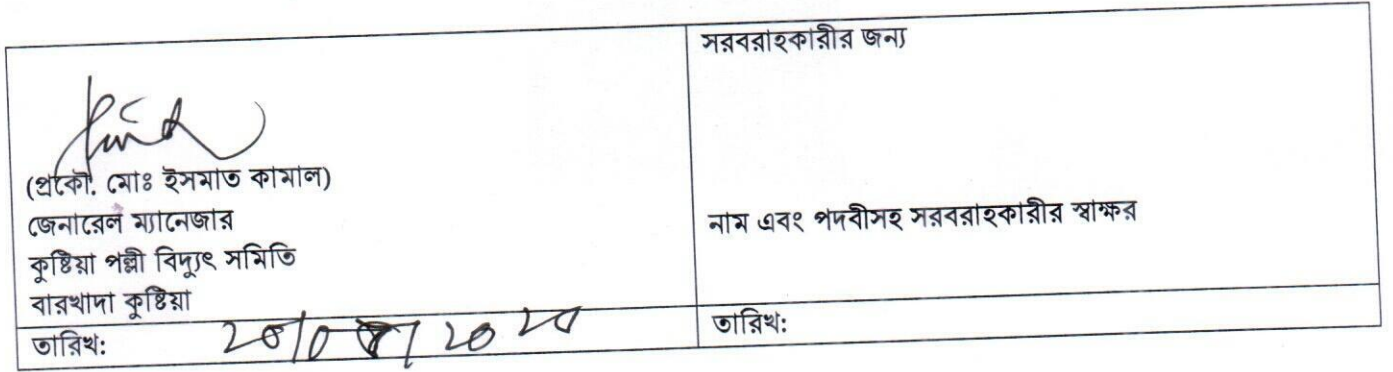 সরবরাহকারীর জন্য
(প্রকৌ. মোঃ ইসমাত কামাল)
জেনারেল ম্যানেজার
কুষ্টিয়া পল্লী বিদ্যুৎ সমিতি
বারখাদা কুষ্টিয়া
নাম এবং পদবীসহ সরবরাহকারীর স্বাক্ষর
তারিখ:
তারিখ: